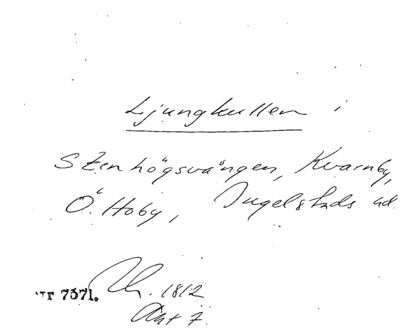 Ljungkullen i
Stenhögsvången, Kvarnby,
Ö. Hoby, Ingelstads hd
Nr 7371.
1812
Akt 7